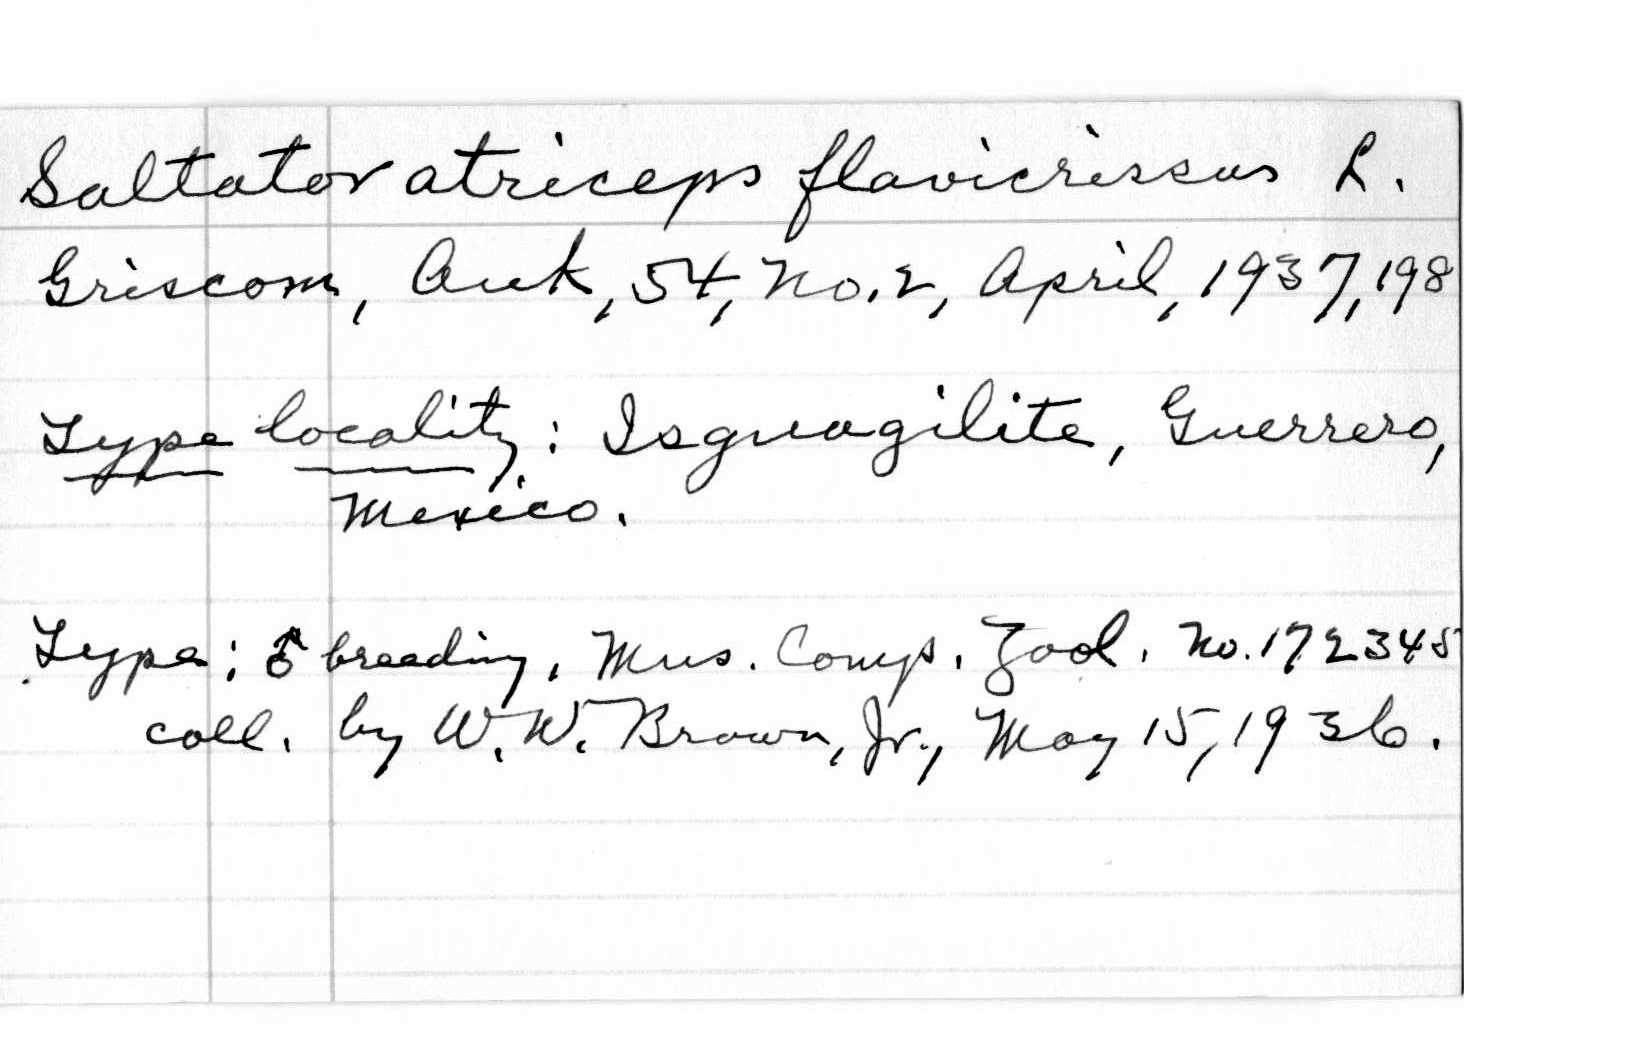 Saltator atriceps flavicrissus L.
Griscom, Auk, 54, No. 2, April, 1937, 198
Type locality: Isguagilite, Guerrero,
Mexico.
Type: ♂ breeding, Mus. Comp. Zool. No. 172345
coll. by W. W. Brown, Jr., May 15, 1936.